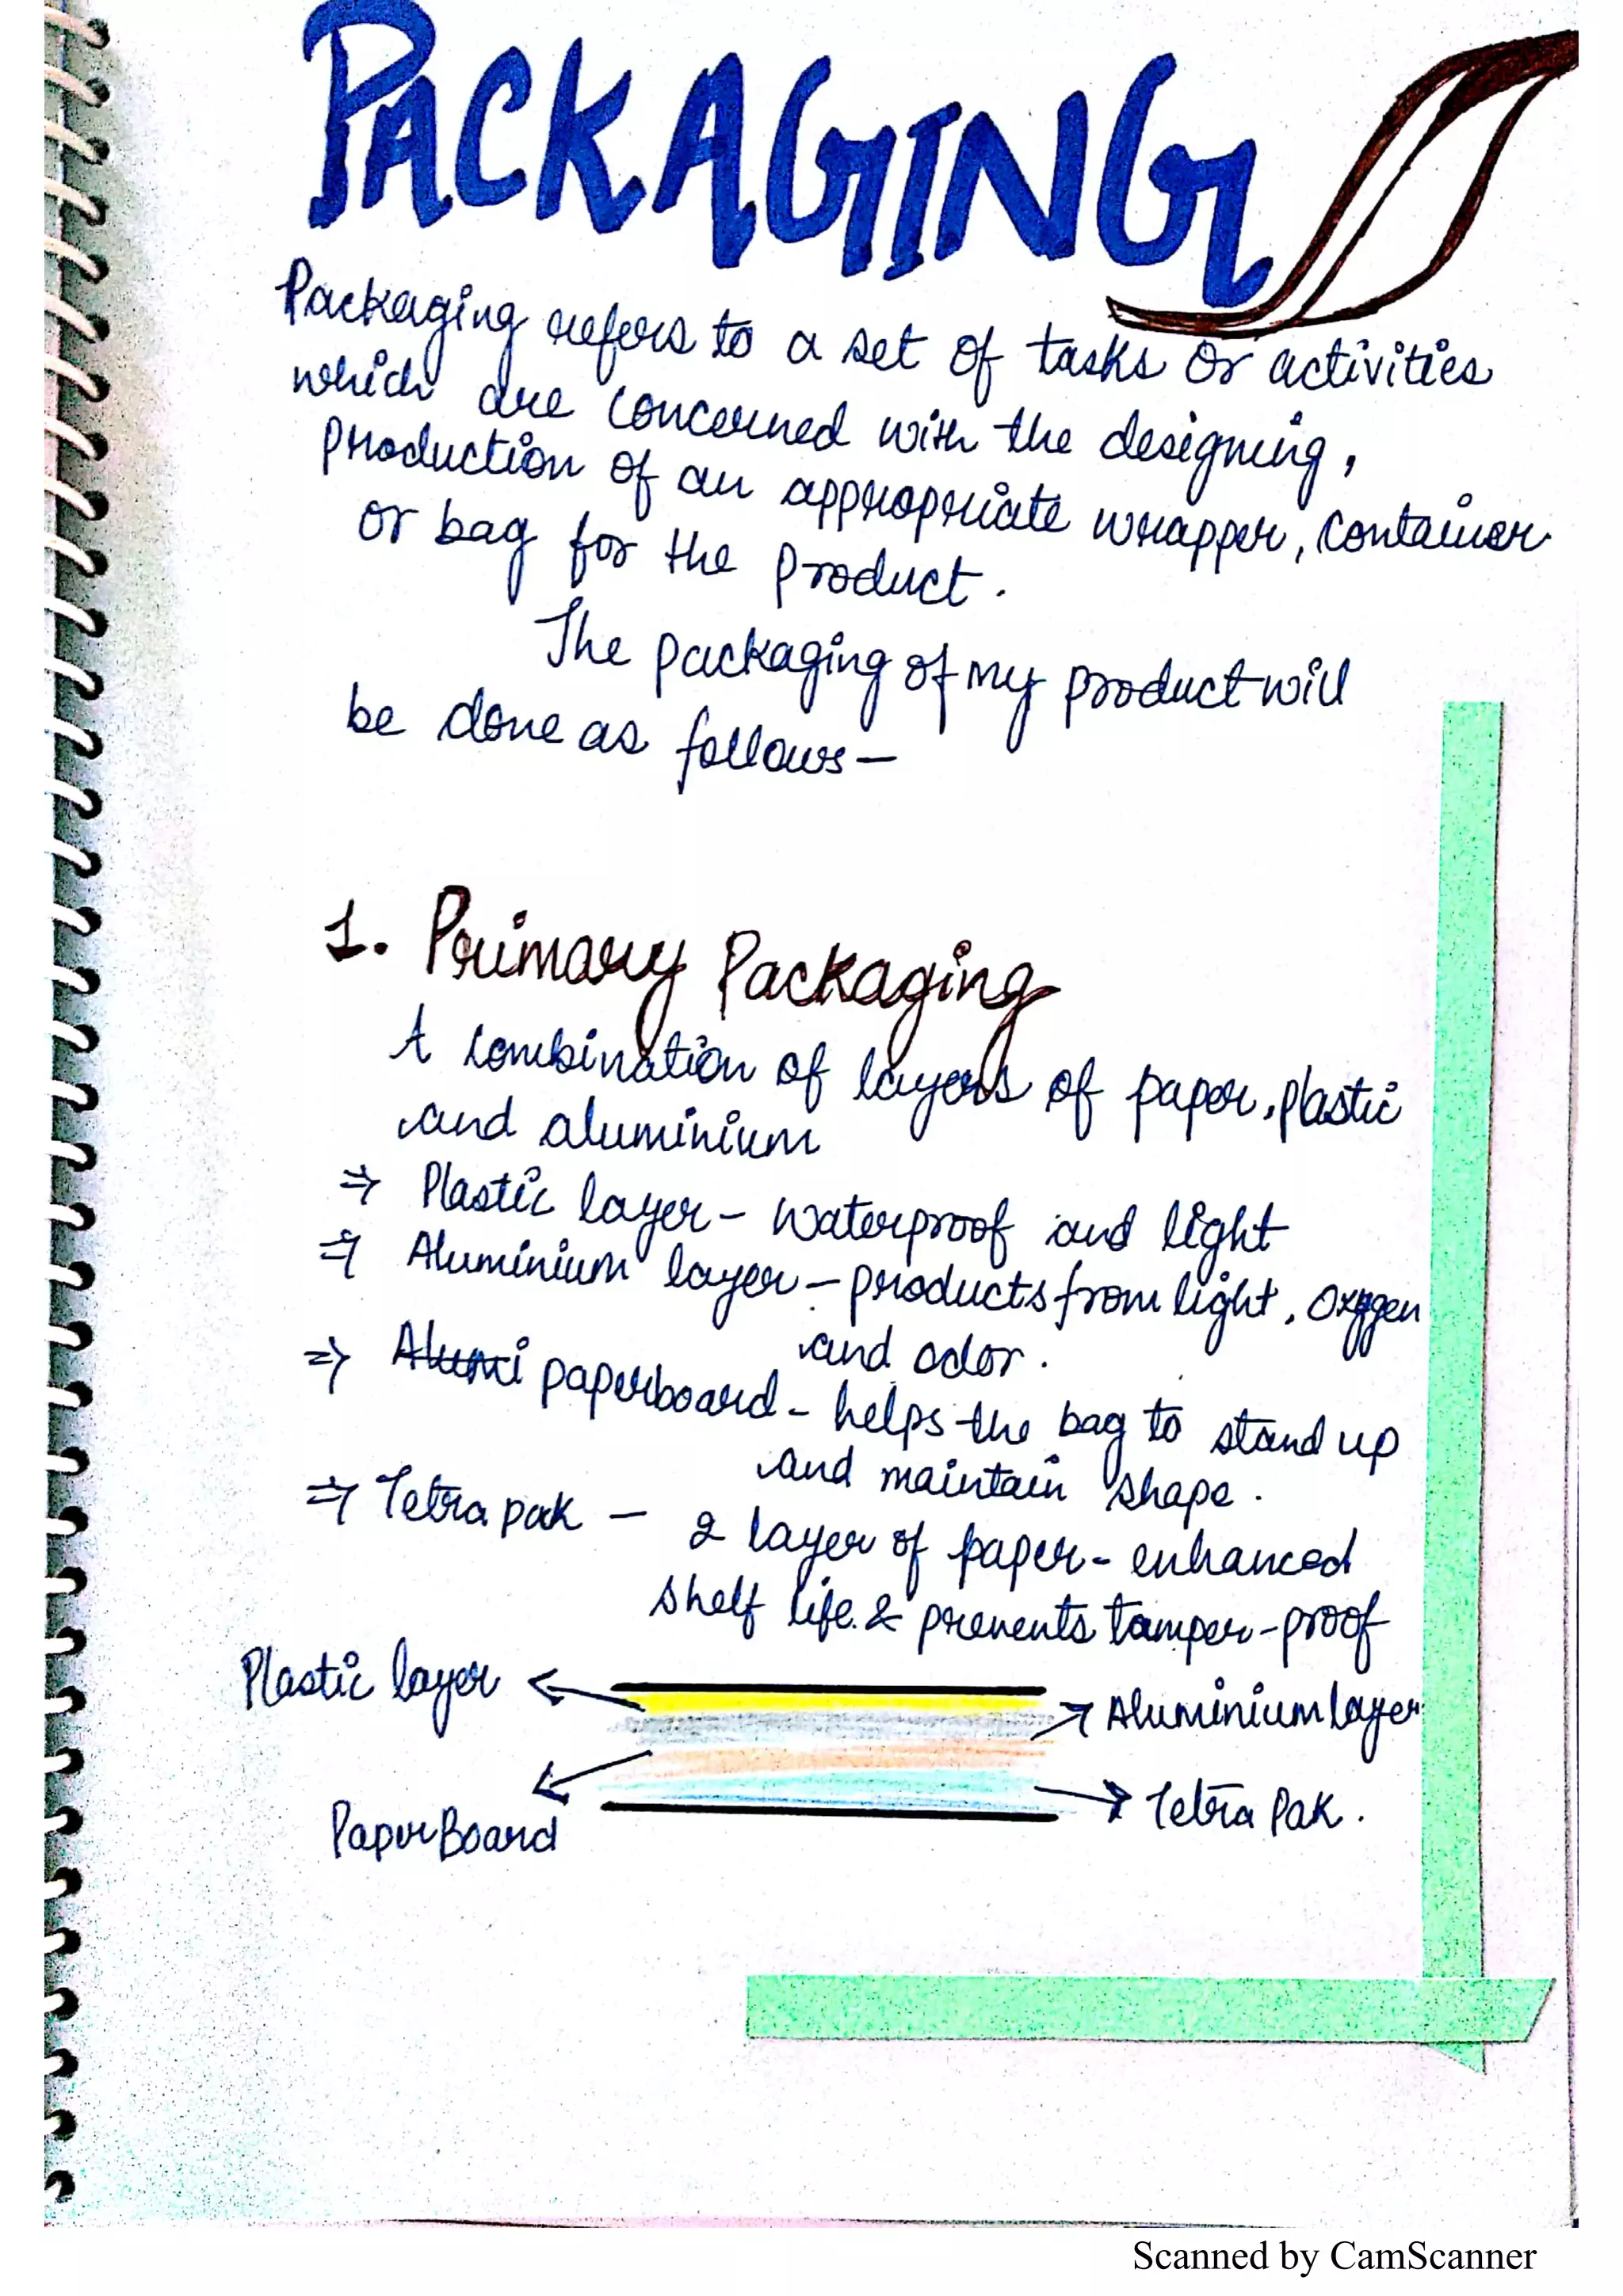 PACKAGING
Packaging refers to a set of tasks or activities
which are concerned with the designing,
production of an appropriate wrapper, container
or bag for the product.
The packaging of my product will
be done as follows-
1. Primary Packaging
A combination of layers of paper, plastic
and aluminium
⇒ Plastic layer - waterproof and light
⇒ Aluminium layer - products from light, oxygen
and odor.
⇒ Alumi paperboard - helps the bag to stand up
and maintain shape.
⇒ Tetra pak - 2 layer of paper - enhanced
shelf life & prevents tamper-proof
Plastic layer
Aluminium layer
PaperBoard
Tetra Pak.
Scanned by CamScanner